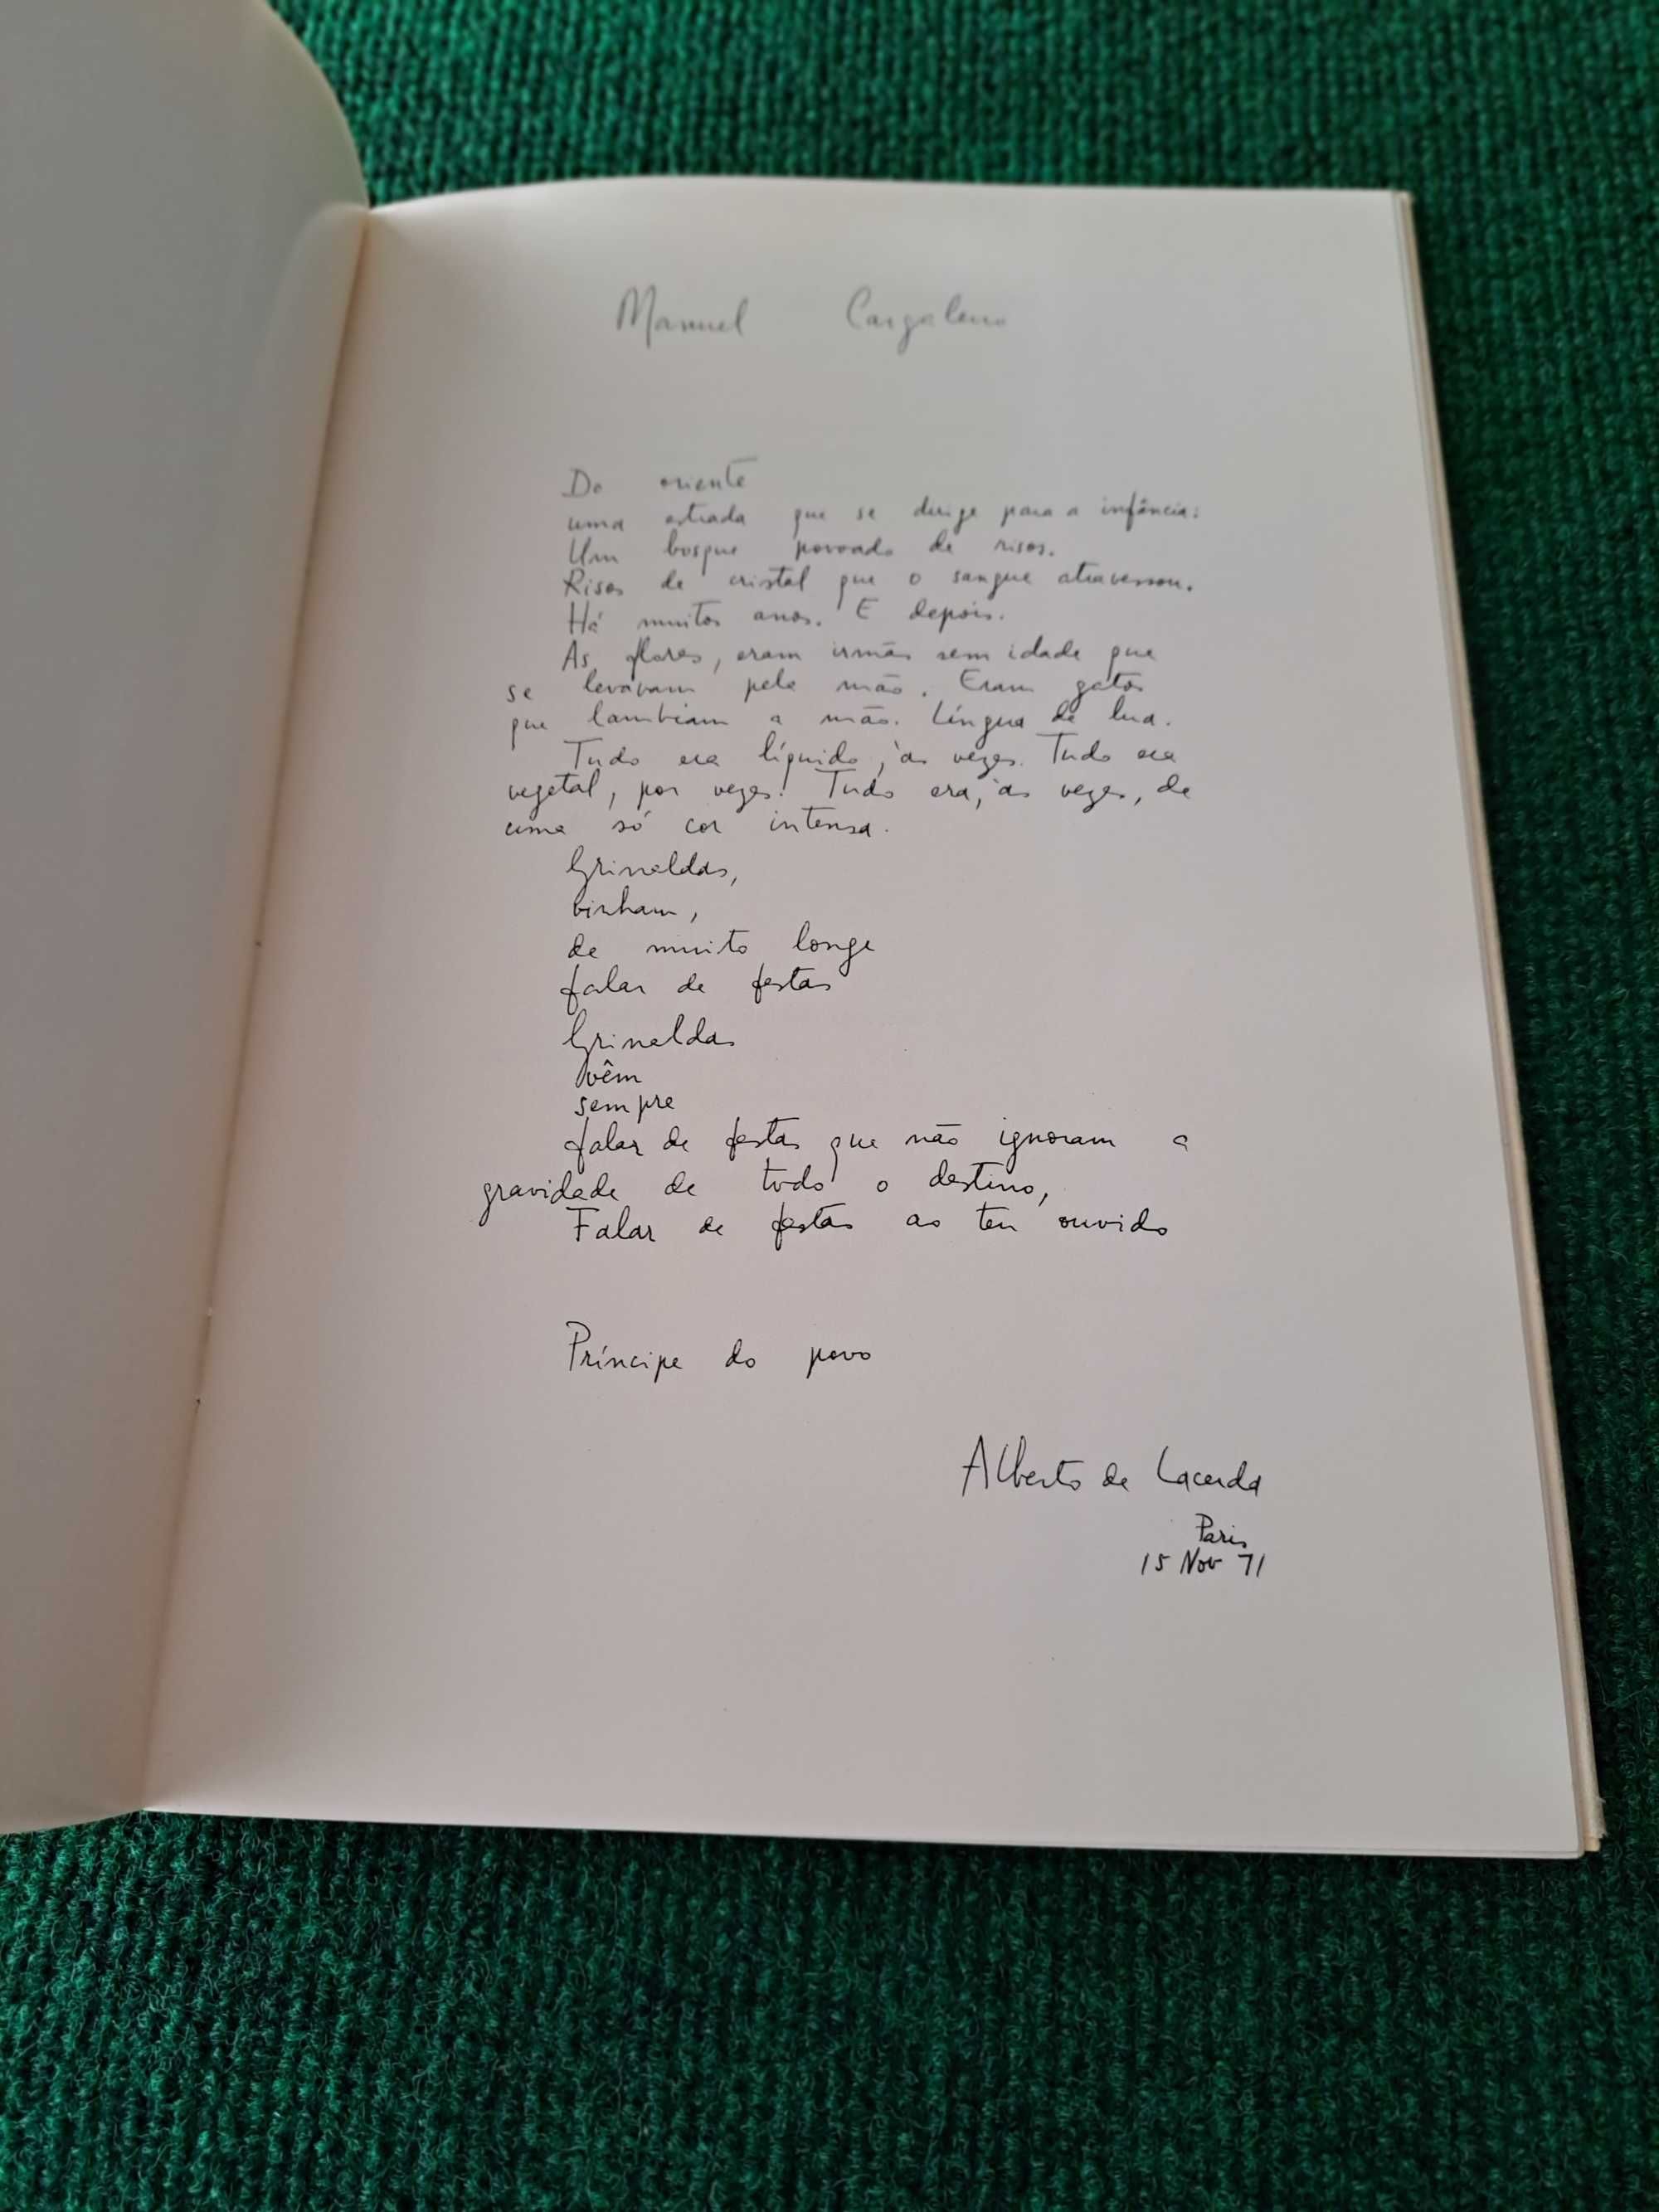 Manuel Cargaleiro
Do oriente
uma estrada que se dirige para a infância:
Um bosque povoado de risos.
Risos de cristal que o sangue atravessou.
Há muitos anos. E depois.
As flores, eram irmãs sem idade que
se levavam pela mão. Eram gatos
que lambiam a mão. Língua de lua.
Tudo era líquido, às vezes. Tudo era
vegetal, por vezes. Tudo era, às vezes, de
uma só cor intensa.
Grinaldas,
vinham,
de muito longe
falar de festas
Grinaldas
vêm
sempre
falar de festas que não ignoram a
gravidade de todo o destino,
Falar de festas ao teu ouvido
Príncipe do povo
Alberto de Lacerda
Paris
15 Nov 71